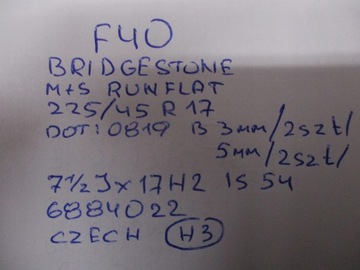 F40
BRIDGESTONE
M+S RUNFLAT
225/45 R 17
DOT: 0819 B 3mm/2szt/
5mm/2szt/
7 1/2 J x 17 H2 IS 54
6884022
CZECH H3